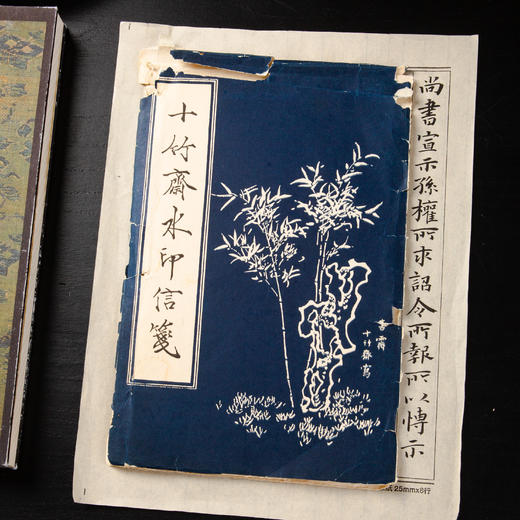 十竹齋水印信箋
十竹齋寫
尚書宣示孫權所求詔令所報所以博示
25mmx8行